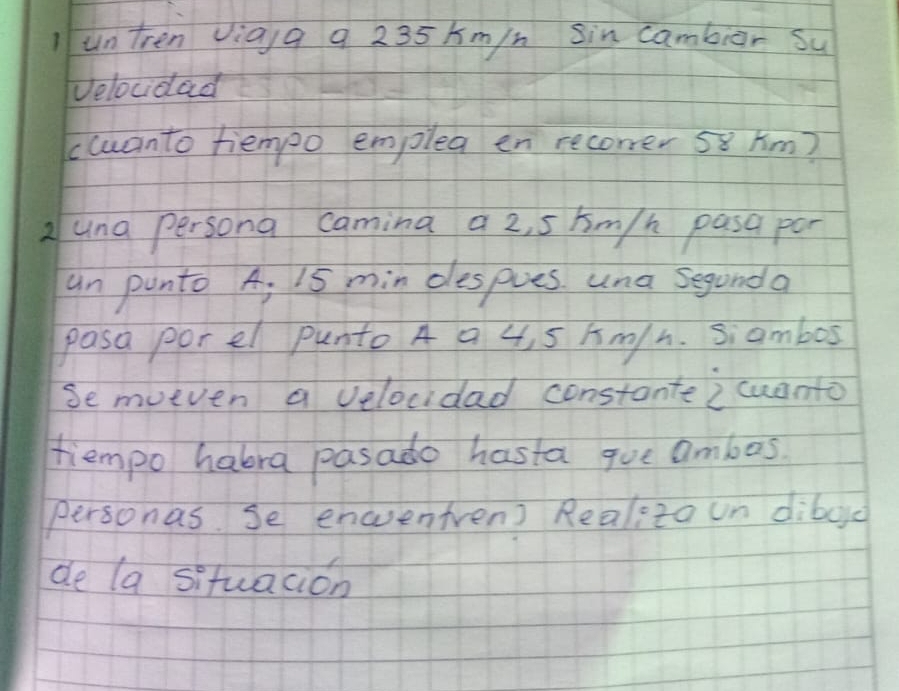 1 un tren viaja a 235 Km/h Sin cambiar Su
velocidad
¿cuanto tiempo emplea en recorrer 58 Km?
2 una persona camina a 2,5 Km/h pasa por
un punto A; 15 min despues. una segunda
pasa por el punto A a 4,5 Km/h. Si ambos
se mueven a velocidad constante ¿cuanto
tiempo habra pasado hasta que ambas.
personas. se encuentren? Realiza un dibujo
de la situación